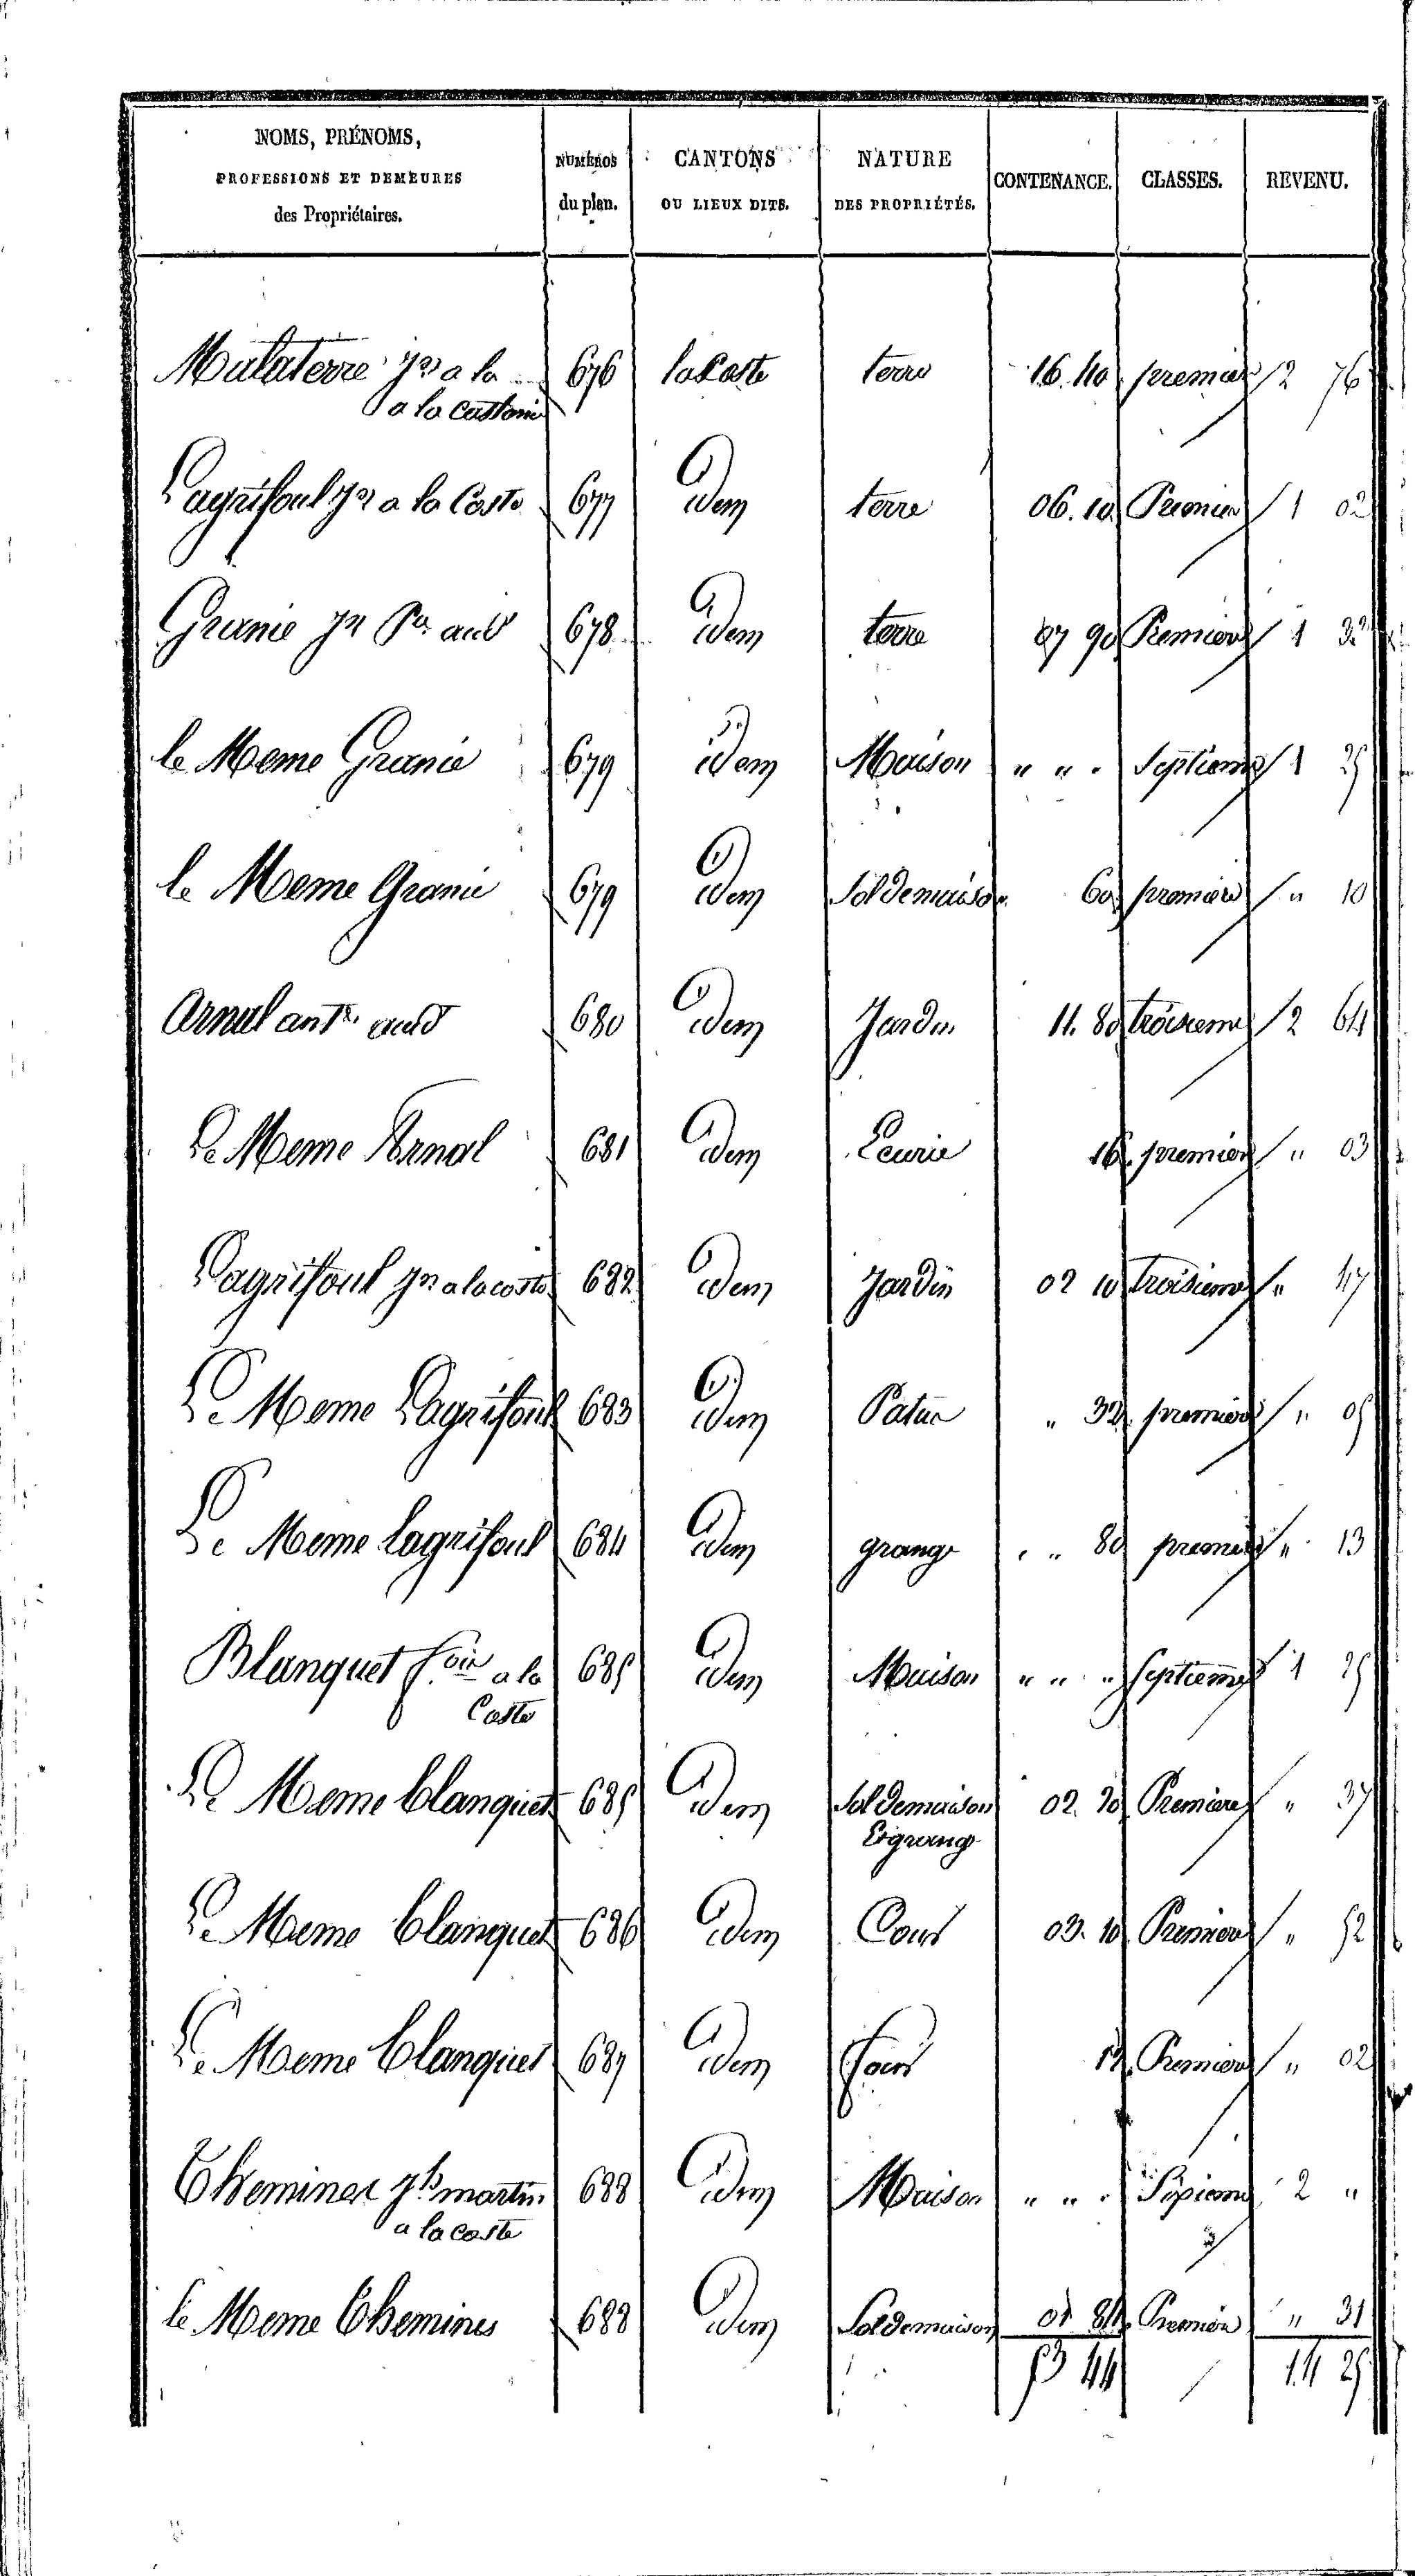 NOMS, PRÉNOMS, PROFESSIONS ET DEMEURES des Propriétaires. NUMÉROS du plan. CANTONS OU LIEUX DITS. NATURE DES PROPRIÉTÉS. CONTENANCE. CLASSES. REVENU.
Malaterre jn a la 676 la Coste terre 16.40 premier 2 76
a la
Lagrifoul jn a la Coste 677 idem terre 06.10 Premier 1 02
Granie jn Pre aud 678 idem terre 07 90 Premiere 1 32
le Meme Granié 679 idem Maison " " " Septieme 1 25
le Meme Granie 679 idem Sol de maison 60 premiere " 10
Arnal ant. aud 680 idem Jardin 11.80 troisieme 2 64
Le Meme Arnal 681 idem Ecurie 16 premiere " 03
Lagrifoul jn a la coste 682 idem Jardin 02 10 troisieme " 47
Le Meme Lagrifoul 683 idem Patus " 32 premiere " 05
Le Meme Lagrifoul 684 idem grange " " 80 premiere " 13
Blanquet fois a la 685 idem Maison " " " Septieme 1 25
Coste
Le Meme blanquet 685 idem Sol de maison 02.20 Premiere " 37
Et grange
Le Meme blanquet 686 idem Cour 03.10 Premiere " 52
Le Meme blanquet 687 idem four 12 Premiere " 02
Chemines jh martin 688 idem Maison " " " 2 "
a la coste
le Meme Chemines 688 idem Sol de maison 01 84 Premiere " 31
53 44 14 25